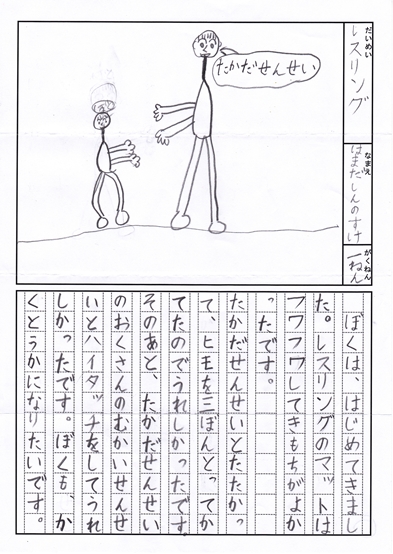 だいめい
レスリング
なまえ
はまだしんのすけ
がくねん
一ねん
たかだせんせい
ぼくは、はじめてきまし
た。レスリングのマットは
フワフワしてきもちがよか
ったです。
たかだせんせいとたたかっ
て、ヒモを三ぼんとってか
てたのでうれしかったです。
そのあと、たかだせんせい
のおくさんのむかいせんせ
いとハイタッチをしてうれ
しかったです。ぼくも、か
くとうかになりたいです。